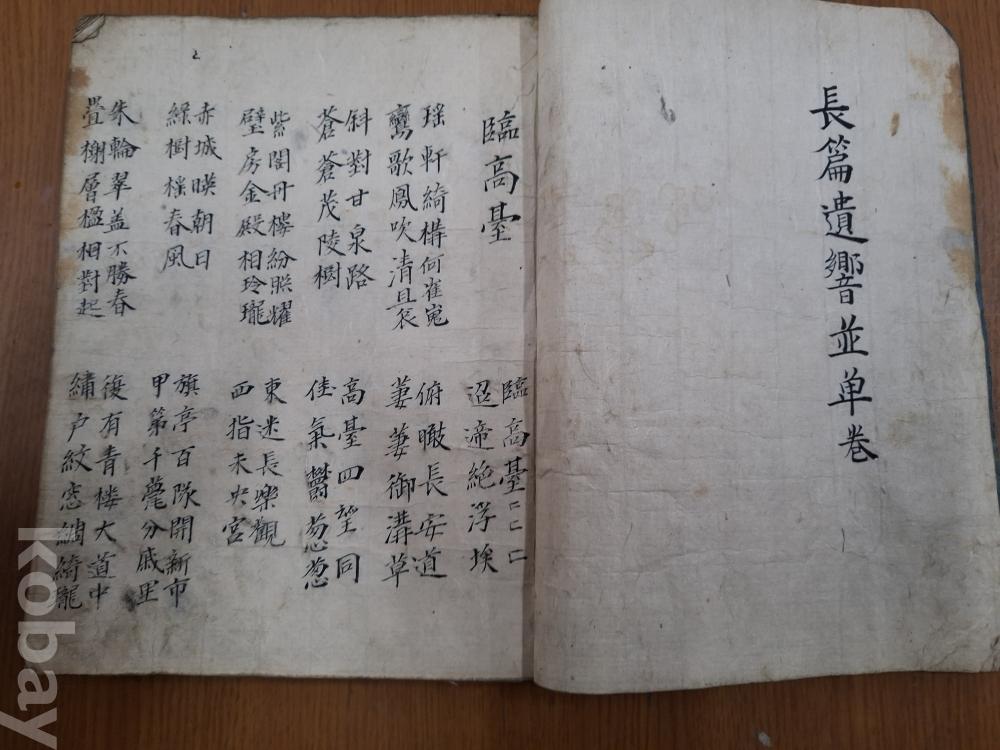 長篇遺響並单巻
臨高臺
臨高臺〻〻〻
迢遞絶浮埃
瑶軒綺構何崔嵬
鸞歌鳳吹清且哀
俯瞰長安道
萋萋御溝草
斜對甘泉路
蒼蒼茂陵樹
高臺四望同
佳氣鬱葱葱
紫閣丹楼紛照耀
璧房金殿相玲瓏
東迷長樂觀
西指未央宮
赤城暎朝日
綠樹搖春風
旗亭百隊開新市
甲第千甍分戚里
朱輪翠盖不勝春
疊榭層楹相對起
復有青楼大道中
繡户紋窓綢綺瓏
kobay